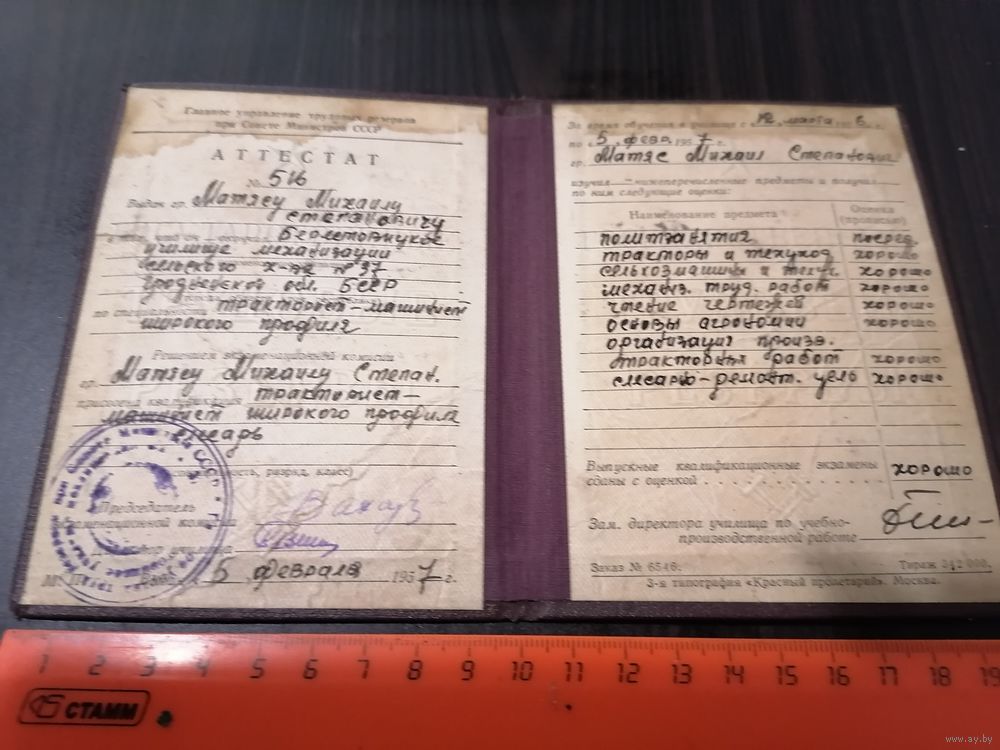 Главное управление трудовых резервов
при Совете Министров СССР
АТТЕСТАТ
№ 516
Выдан гр. Матясу Михаилу
Степановичу
училище механизации
сельского х-ва №37
Гродненской обл. БССР
по специальности тракторист-машинист
широкого профиля
Решением экзаменационной комиссии
гр. Матясу Михаилу Степан.
присвоена квалификация тракторист-
машинист широкого профиля
слесарь
разряд, класс)
Председатель
экзаменационной комиссии
Директор училища
5 февраля 1957 г.
За время обучения в училище с 12 марта 1956 г.
по 5 февр. 1957 г.
гр. Матяс Михаил Степанович
изучил нижеперечисленные предметы и получил
по ним следующие оценки:
Наименование предмета
Оценка
(прописью)
политзанятия посред.
тракторы и техуход хорошо
сельхозмашины и техух. хорошо
механиз. труд. работ хорошо
чтение чертежей хорошо
основы агрономии хорошо
организация произв.
тракторных работ хорошо
слесарно-ремонт. дело хорошо
Выпускные квалификационные экзамены
сданы с оценкой хорошо
Зам. директора училища по учебно-
производственной работе
Заказ № 6546. Тираж 342 000.
3-я типография «Красный пролетарий». Москва.
1 2 3 4 5 6 7 8 9 10 11 12 13 14 15 16 17 18 19
СТАММ
www.ay.by